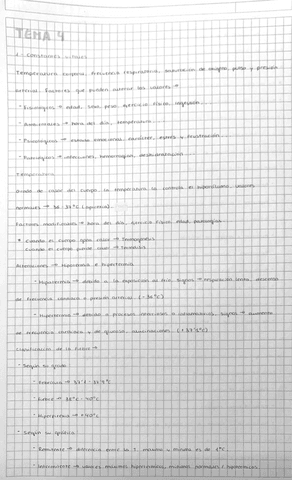 TEMA 4
1. Constantes vitales
Temperatura corporal, frecuencia respiratoria, saturación de oxígeno, pulso y presión
arterial. Factores que pueden alterar los valores →
· Fisiológicos → edad, sexo, peso, ejercicio físico, digestión...
· Ambientales → hora del día, temperatura...
· Psicológicos → estado emocional, carácter, estrés y frustración...
· Patológicos → infecciones, hemorragias, deshidratación...
Temperatura
Grado de calor del cuerpo. La temperatura la controla el hipotálamo. Valores
normales → 36-37°C (axilar).
Factores modificantes → hora del día, ejercicio físico, edad, patologías...
* Cuando el cuerpo gana calor → Termogénesis
Cuando el cuerpo pierde calor → Termólisis
Alteraciones → Hipotermia e hipertermia
· Hipotermia → debido a la exposición al frío. Signos → respiración lenta, descenso
de frecuencia cardíaca o presión arterial. (-36°C)
· Hipertermia → debido a procesos infecciosos o inflamatorios. Signos → aumento
de frecuencia cardíaca y de, alucinaciones. (+37°C)
Clasificación de la fiebre →
· Según su grado
· Febrícula → 37'1 - 37'9°C
· Fiebre → 38°C - 40°C
· Hiperpirexia → +40°C
· Según su
· Remitente → diferencia entre la T. máxima y mínima es de °C.
· Intermitente → valores máximos hipertérmicos, mínimos normales / hipotérmicos